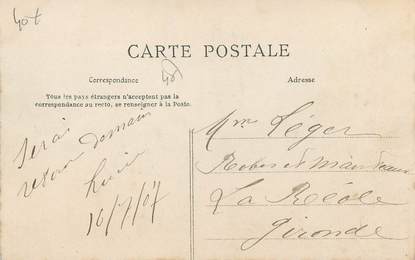 40t
CARTE POSTALE
Correspondance
Adresse
Tous les pays étrangers n'acceptent pas la
correspondance au recto, se renseigner à la Poste.
Serai
retour demain
16/7/07
Mme Léger
Robes et Manteaux
La Réole
Gironde